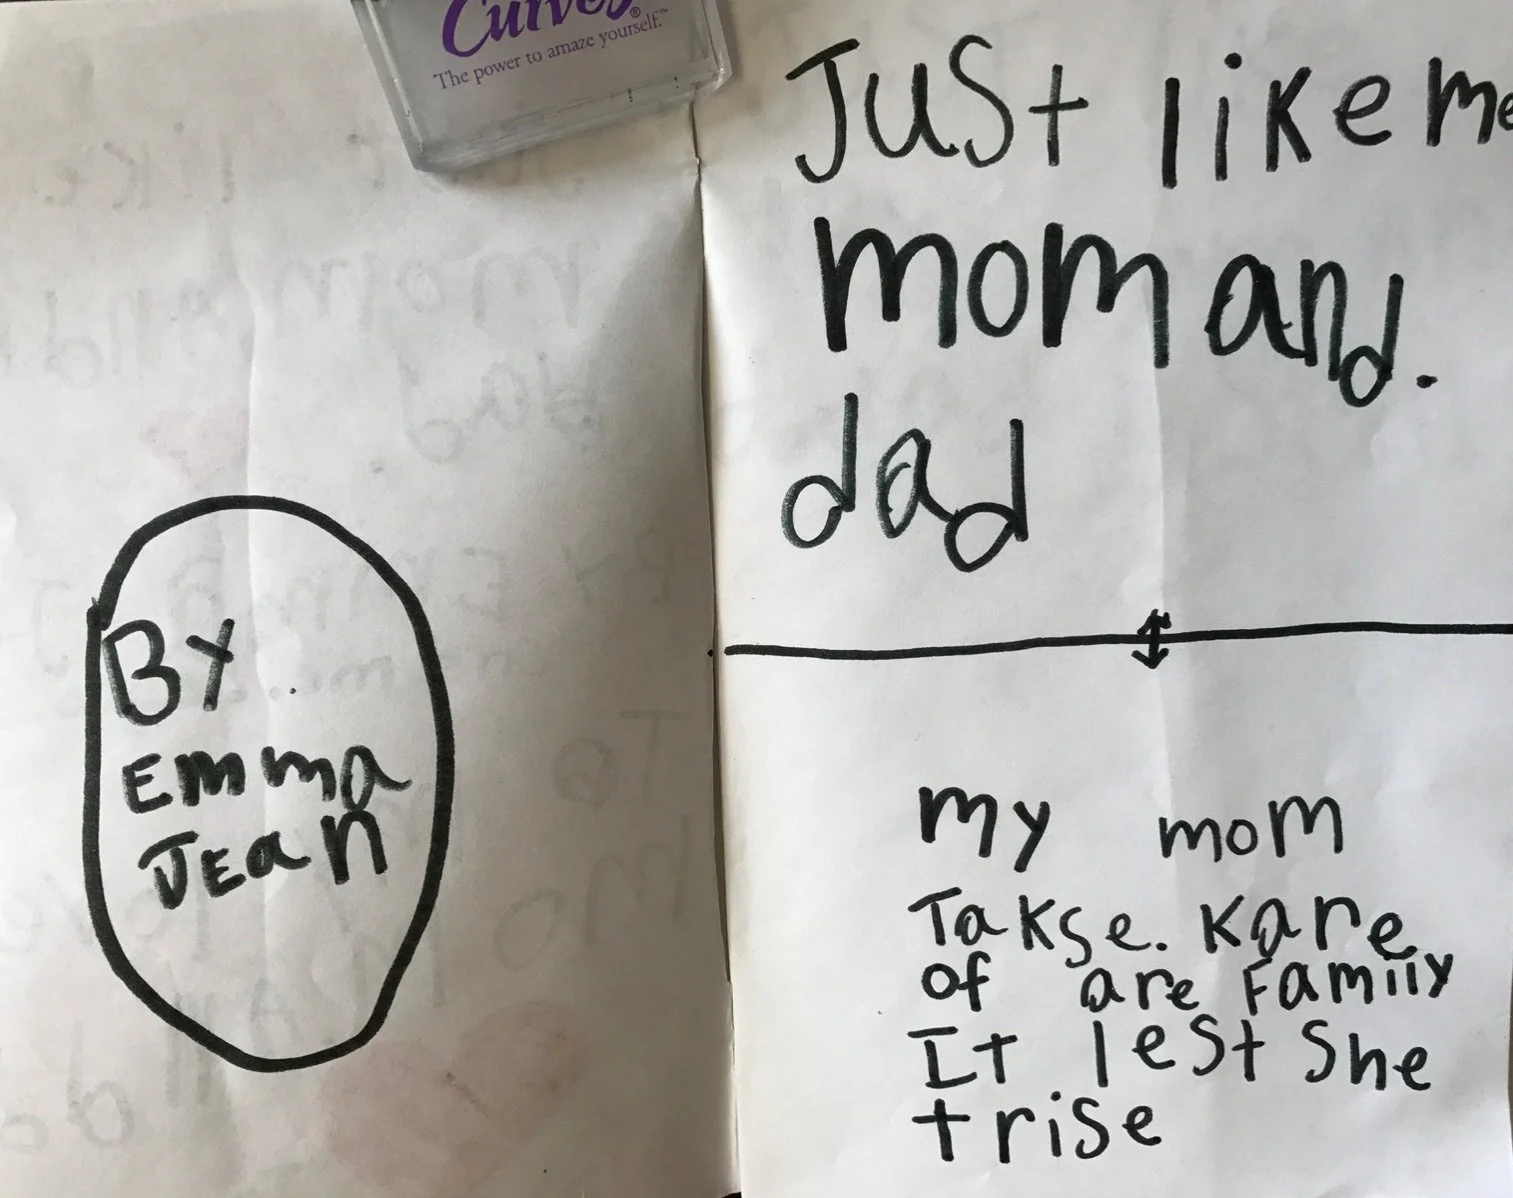 Curves®
The power to amaze yourself.™
By
Emma
Jean
Just like me
mom and.
dad
my mom
Takse. Kare
of are Family
It lest she
trise